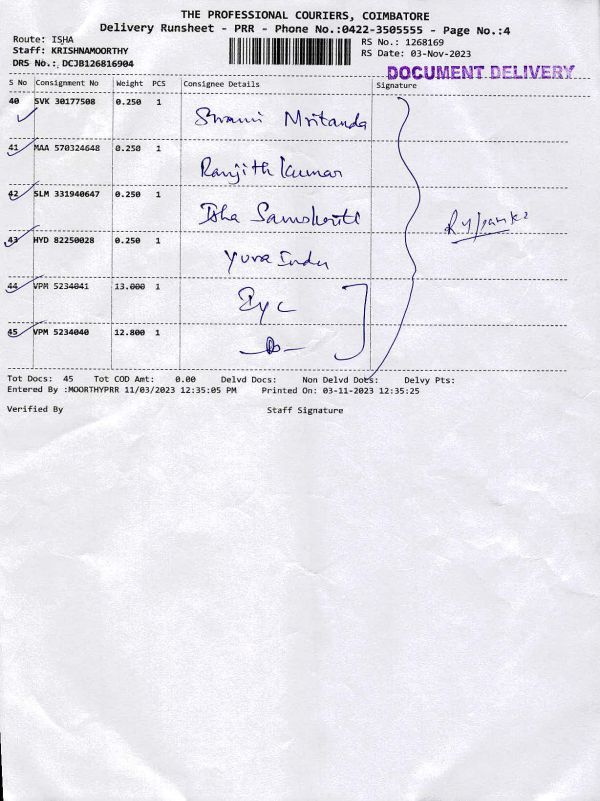 THE PROFESSIONAL COURIERS, COIMBATORE
Delivery Runsheet - PRR - Phone No.:0422-3505555 - Page No.:4
Route: ISHA
Staff: KRISHNAMOORTHY
DRS No.: DCJB126816904
RS No.: 1268169
RS Date: 03-Nov-2023
DOCUMENT DELIVERY
S No Consignment No Weight PCS Consignee Details Signature
40 SVK 30177508 0.250 1 Swami Mritanda
41 MAA 570324648 0.250 1 Ranjith Kumar
42 SLM 331940647 0.250 1 Isha Samskriti
43 HYD 82250028 0.250 1 Yuva Indu
44 VPM 5234041 13.000 1 IYC
45 VPM 5234040 12.800 1 -Do-
Tot Docs: 45 Tot COD Amt: 0.00 Delvd Docs: Non Delvd Dots: Delvy Pts:
Entered By :MOORTHYPRR 11/03/2023 12:35:05 PM Printed On: 03-11-2023 12:35:25
Verified By Staff Signature